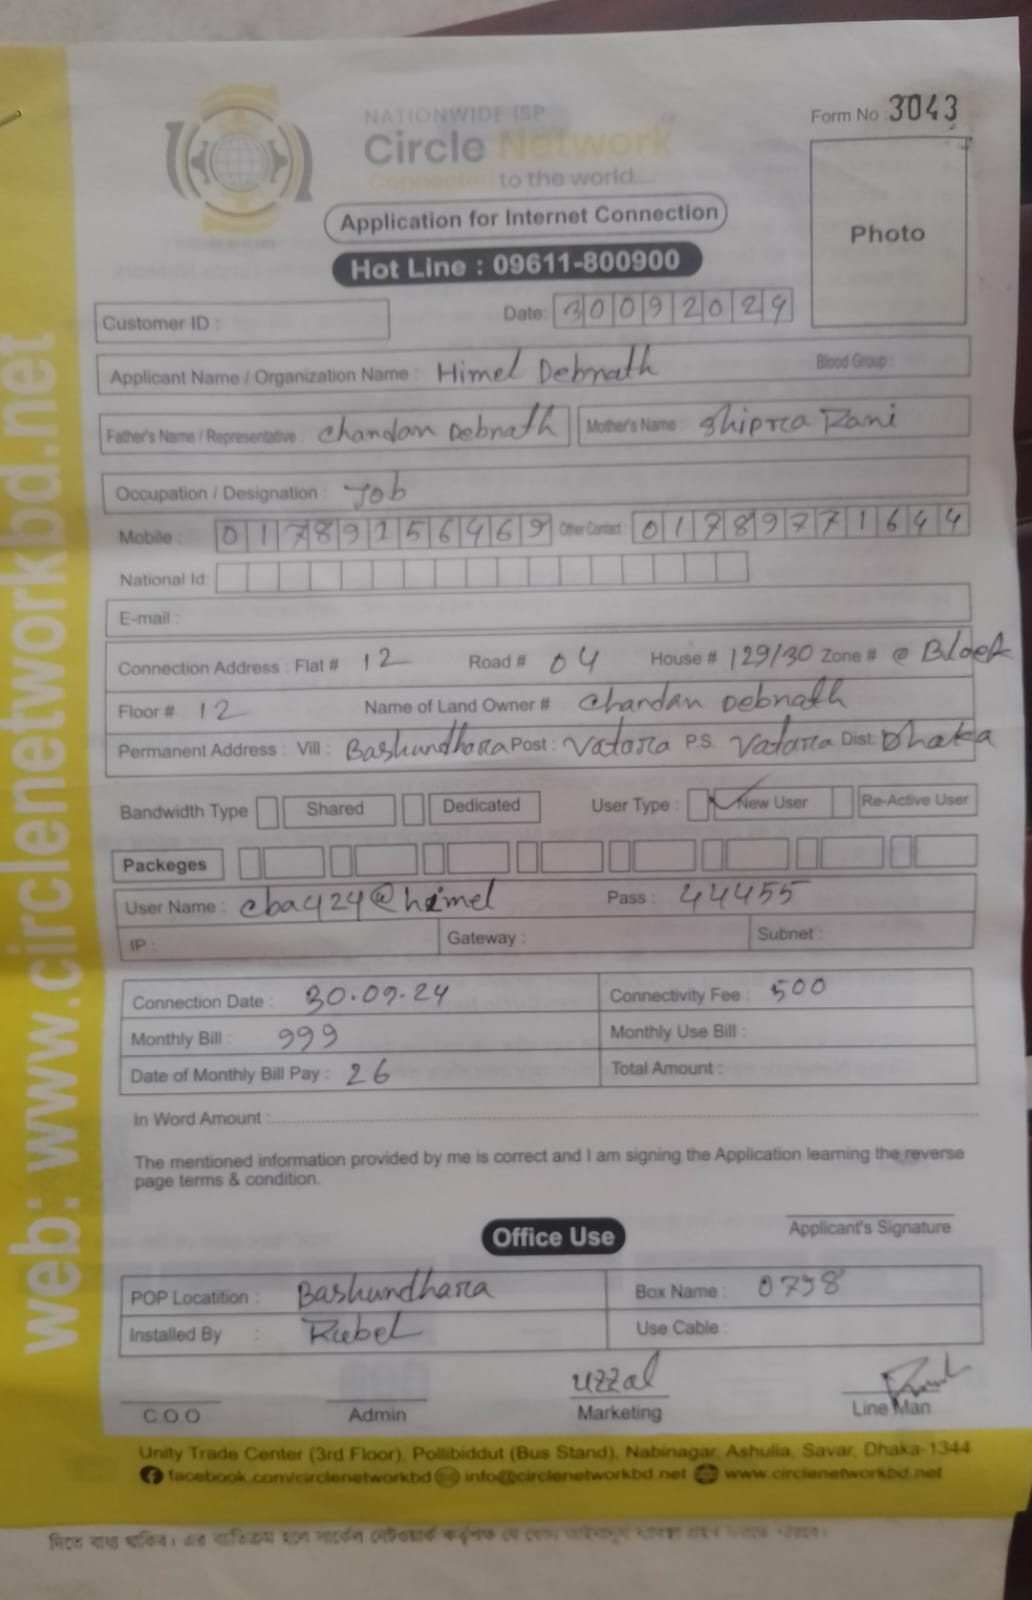 NATIONWIDE ISP
Form No 3043
Circle Network
Connected to the world....
Application for Internet Connection
Photo
Hot Line : 09611-800900
Customer ID :
Date: 30092024
Applicant Name / Organization Name : Himel Debnath Blood Group :
Father's Name / Representative : Chandan Debnath Mother's Name : Shipra Rani
Occupation / Designation : Job
Mobile : 01789256469 Other Contact : 01789771644
National Id:
E-mail :
Connection Address : Flat # 12 Road # 04 House # 129/30 Zone # @ Block
Floor # 12 Name of Land Owner # Chandan Debnath
Permanent Address : Vill : Bashundhara Post : Vatara P.S. Vatara Dist: Dhaka
Bandwidth Type Shared Dedicated User Type : New User Re-Active User
Packeges
User Name : cba424@himel Pass : 44455
IP : Gateway : Subnet :
Connection Date : 30.09.24 Connectivity Fee : 500
Monthly Bill : 999 Monthly Use Bill :
Date of Monthly Bill Pay : 26 Total Amount :
In Word Amount :
The mentioned information provided by me is correct and I am signing the Application learning the reverse
page terms & condition.
Applicant's Signature
Office Use
POP Locatition : Bashundhara Box Name : 0798
Installed By : Rubel Use Cable :
Uzzal
C.O.O Admin Marketing Line Man
Unity Trade Center (3rd Floor), Pollibiddut (Bus Stand), Nabinagar, Ashulia, Savar, Dhaka-1344
facebook.com/circlenetworkbd info@circlenetworkbd.net www.circlenetworkbd.net
web: www.circlenetworkbd.net